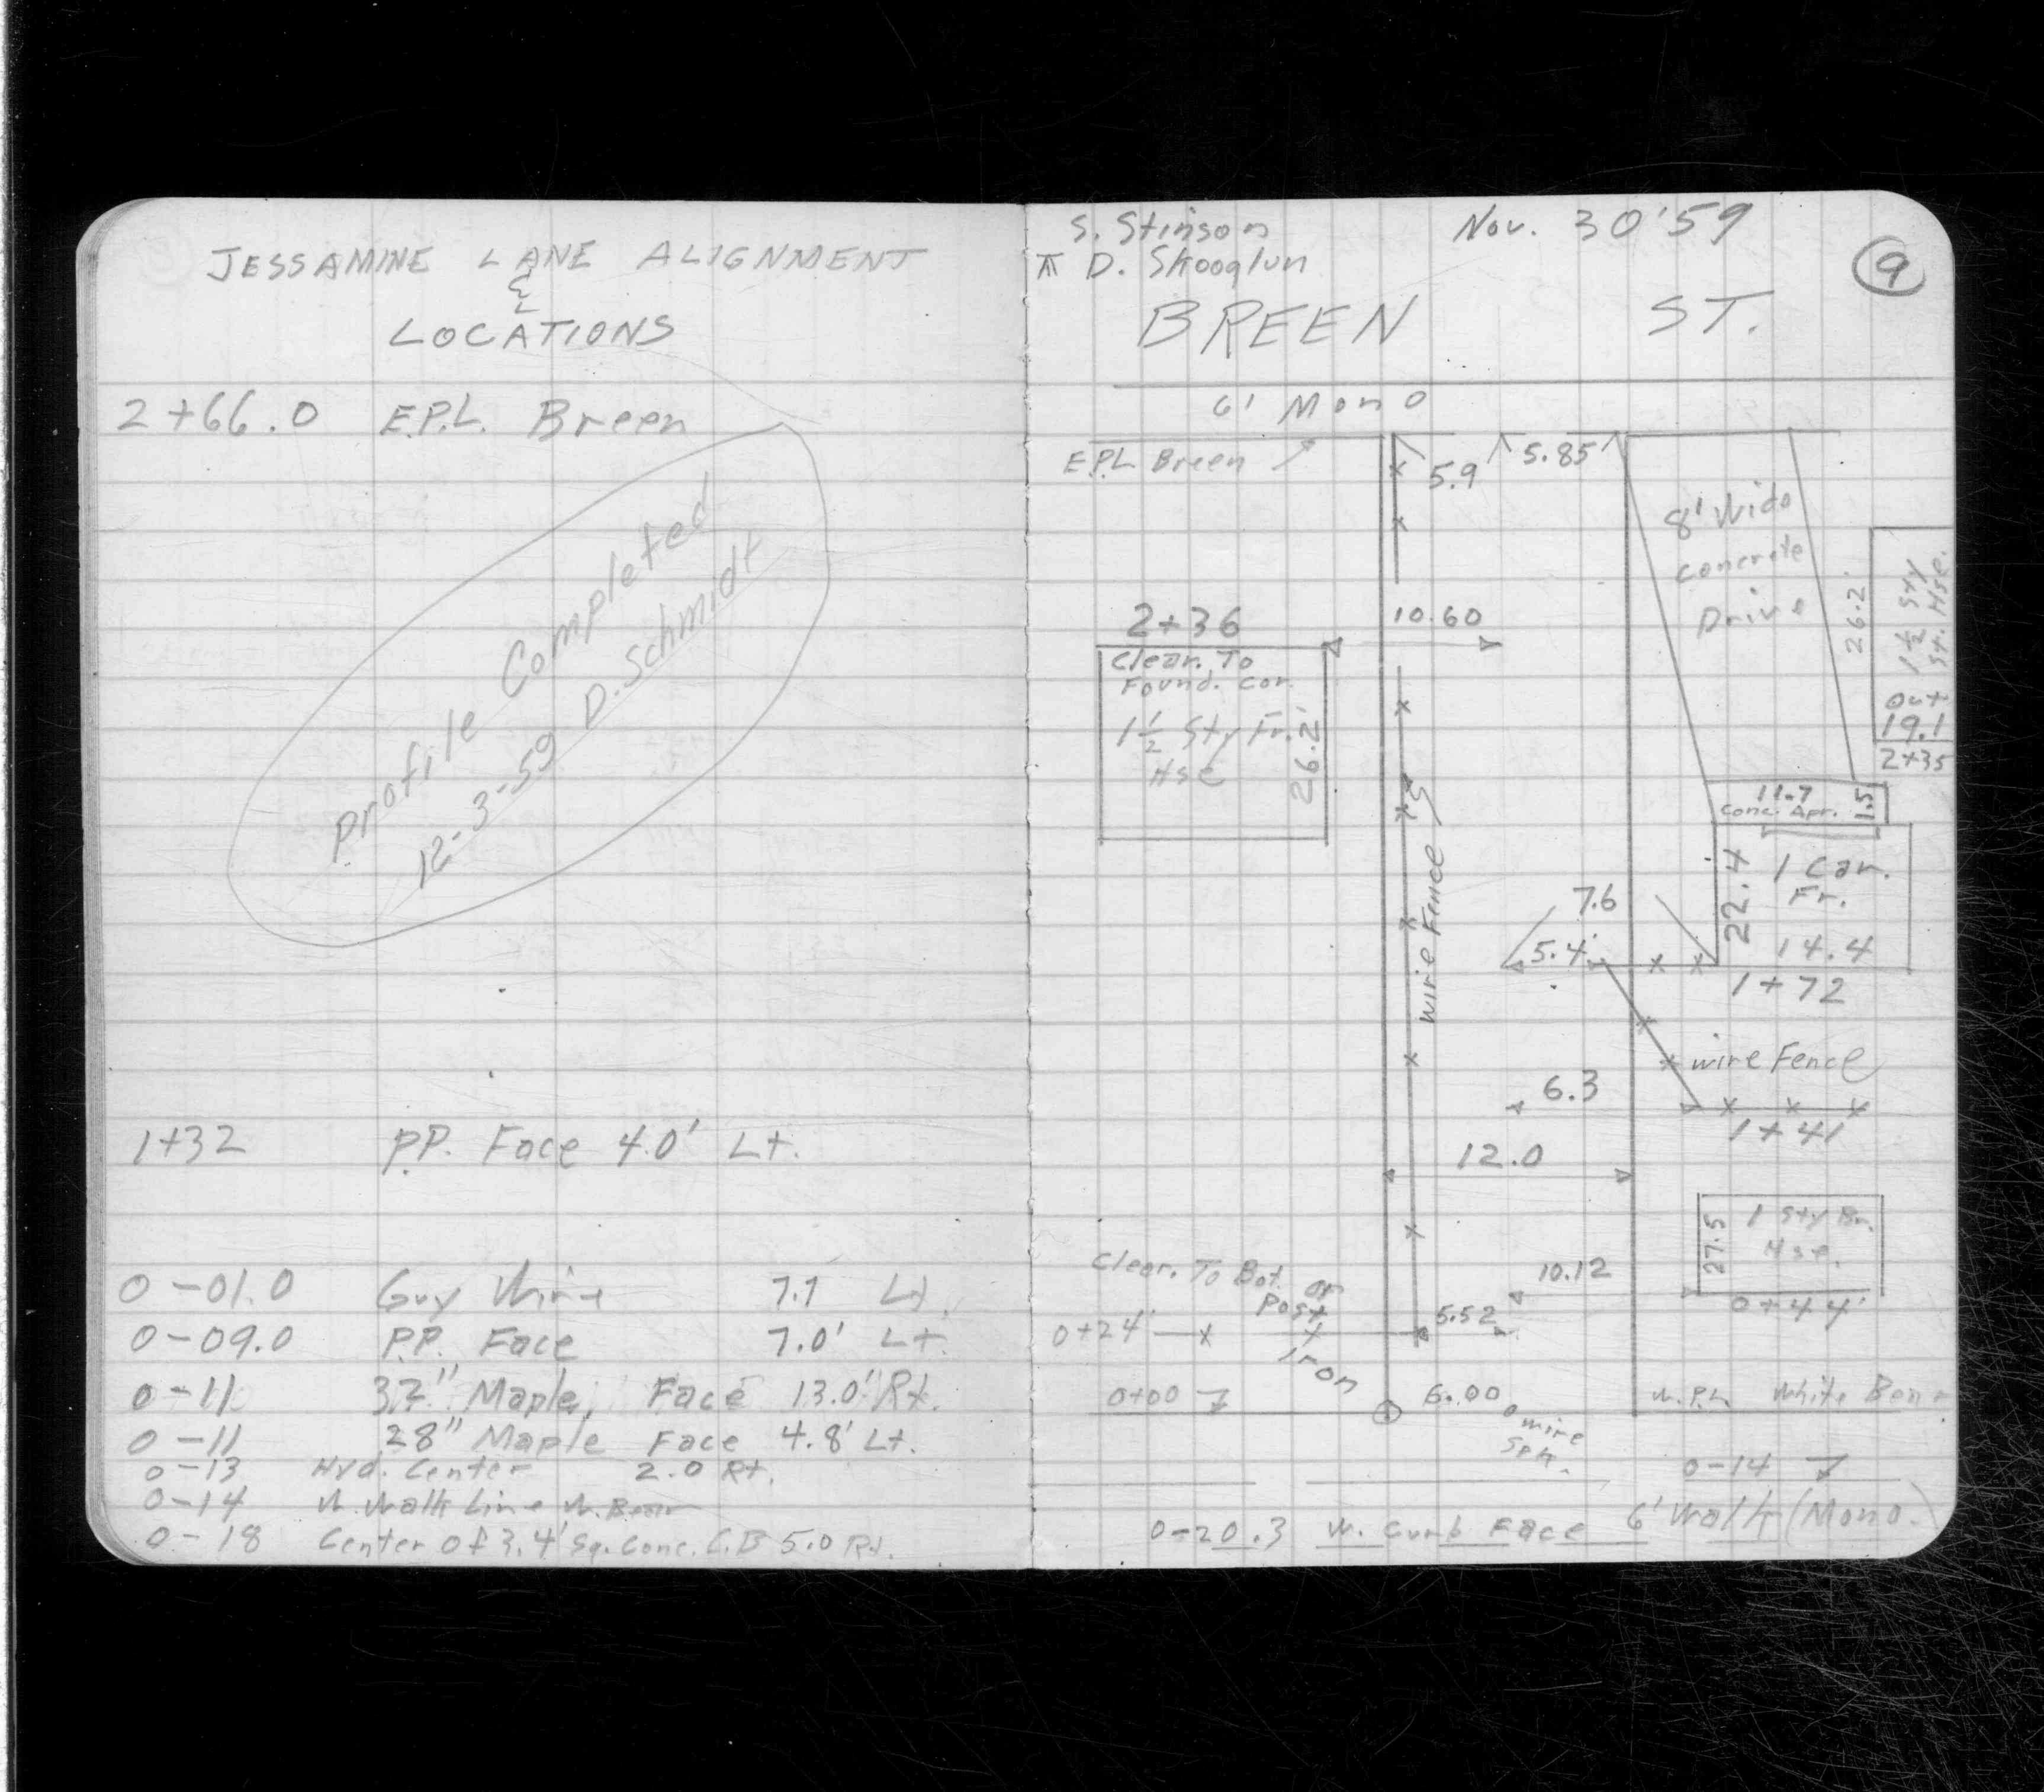 JESSAMINE LANE ALIGNMENT
&
LOCATIONS
2+66.0 E.P.L. Breen
Profile Completed
12-3-59 D. Schmidt
1+32 P.P. Face 4.0' Lt.
0-01.0 Guy Wire 7.7 Lt.
0-09.0 P.P. Face 7.0' Lt.
0-11 32" Maple, Face 13.0' Rt.
0-11 28" Maple Face 4.8' Lt.
0-13 Hyd. Center 2.0 Rt.
0-14 W. Walk Line W. Bear
0-18 Center of 3.4' Sq. Conc. C.B 5.0 Rt.
S. Stinson Nov. 30 '59
π D. Skooglun
9
BREEN ST.
6' Mono
E.P.L Breen
5.9 5.85
8' Wide
concrete
Drive
26.2'
1½ Sty
St. Hse.
out
19.1
2+35
2+36
10.60
Clear. To
Found. cor.
1½ Sty Fr.
Hse
26.2'
wire Fence
11.7
Conc. Apr. 1.5
22.4
1 Car.
Fr.
14.4
1+72
7.6
5.4
wire Fence
6.3
1+41
12.0
27.5
1 Sty Br.
Hse.
10.12
0+44'
Clear. To Bot. of
Post
5.52
0+24'
Iron
0+00
6.00
wire
Spk.
W.P.L. White Bear
0-14
0-20.3 W. Curb Face 6' Walk (Mono.)